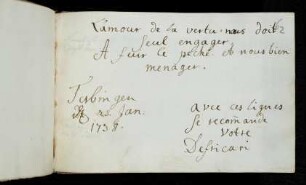 L'amour de la vertu nous doit
seul engager
A fuir le peché et nous bien
menager.
Tubingen
Jan.
1738.
avec ces lignes
se recom̄ande
Votre